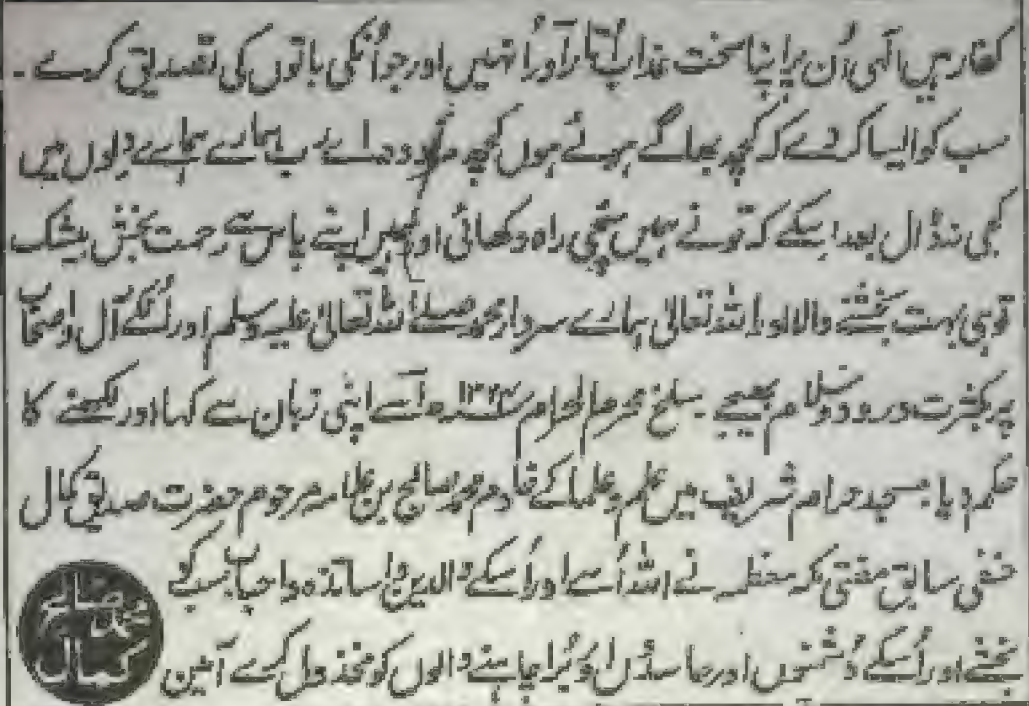 کفار ہیں الٰہی اُن پر اپنا سخت عذاب اُتار اور اُنہیں اور جو اُنکی باتوں کی تصدیق کرے۔
سب کو ایسا کردے کہ کچھ بھاگے ہوئے ہوں کچھ مردود اے رب ہمارے ہمارے دلوں میں
کجی نہ ڈال بعد اسکے کہ تونے ہمیں سچی راہ دکھائی اور ہمیں اپنے پاس سے رحمت بخش بیشک
توہی بہت بخشنے والا اور اللہ تعالیٰ ہمارے سردار محمد صلے اللہ تعالیٰ علیہ وسلم اور انکے آل و اصحاب
پر بکثرت درود و سلام بھیجے سلخ محرم الحرام ۱۳۲۴ھ اسے اپنی زبان سے کہا اور لکھنے کا
حکم دیا مسجد حرام شریف میں علم و علما کے خادم محمد صالح بن علامہ مرحوم حضرت صدیق کمال
حنفی سابق مفتی مکہ معظمہ نے اللہ اُسے اور اُسکے والدین و اساتذہ و احباب سب کو
بخشے اور اُسکے دُشمنوں اور حاسدوں اور بُرا چاہنے والوں کو مخذول کرے آمین
محمد صالح
کمال